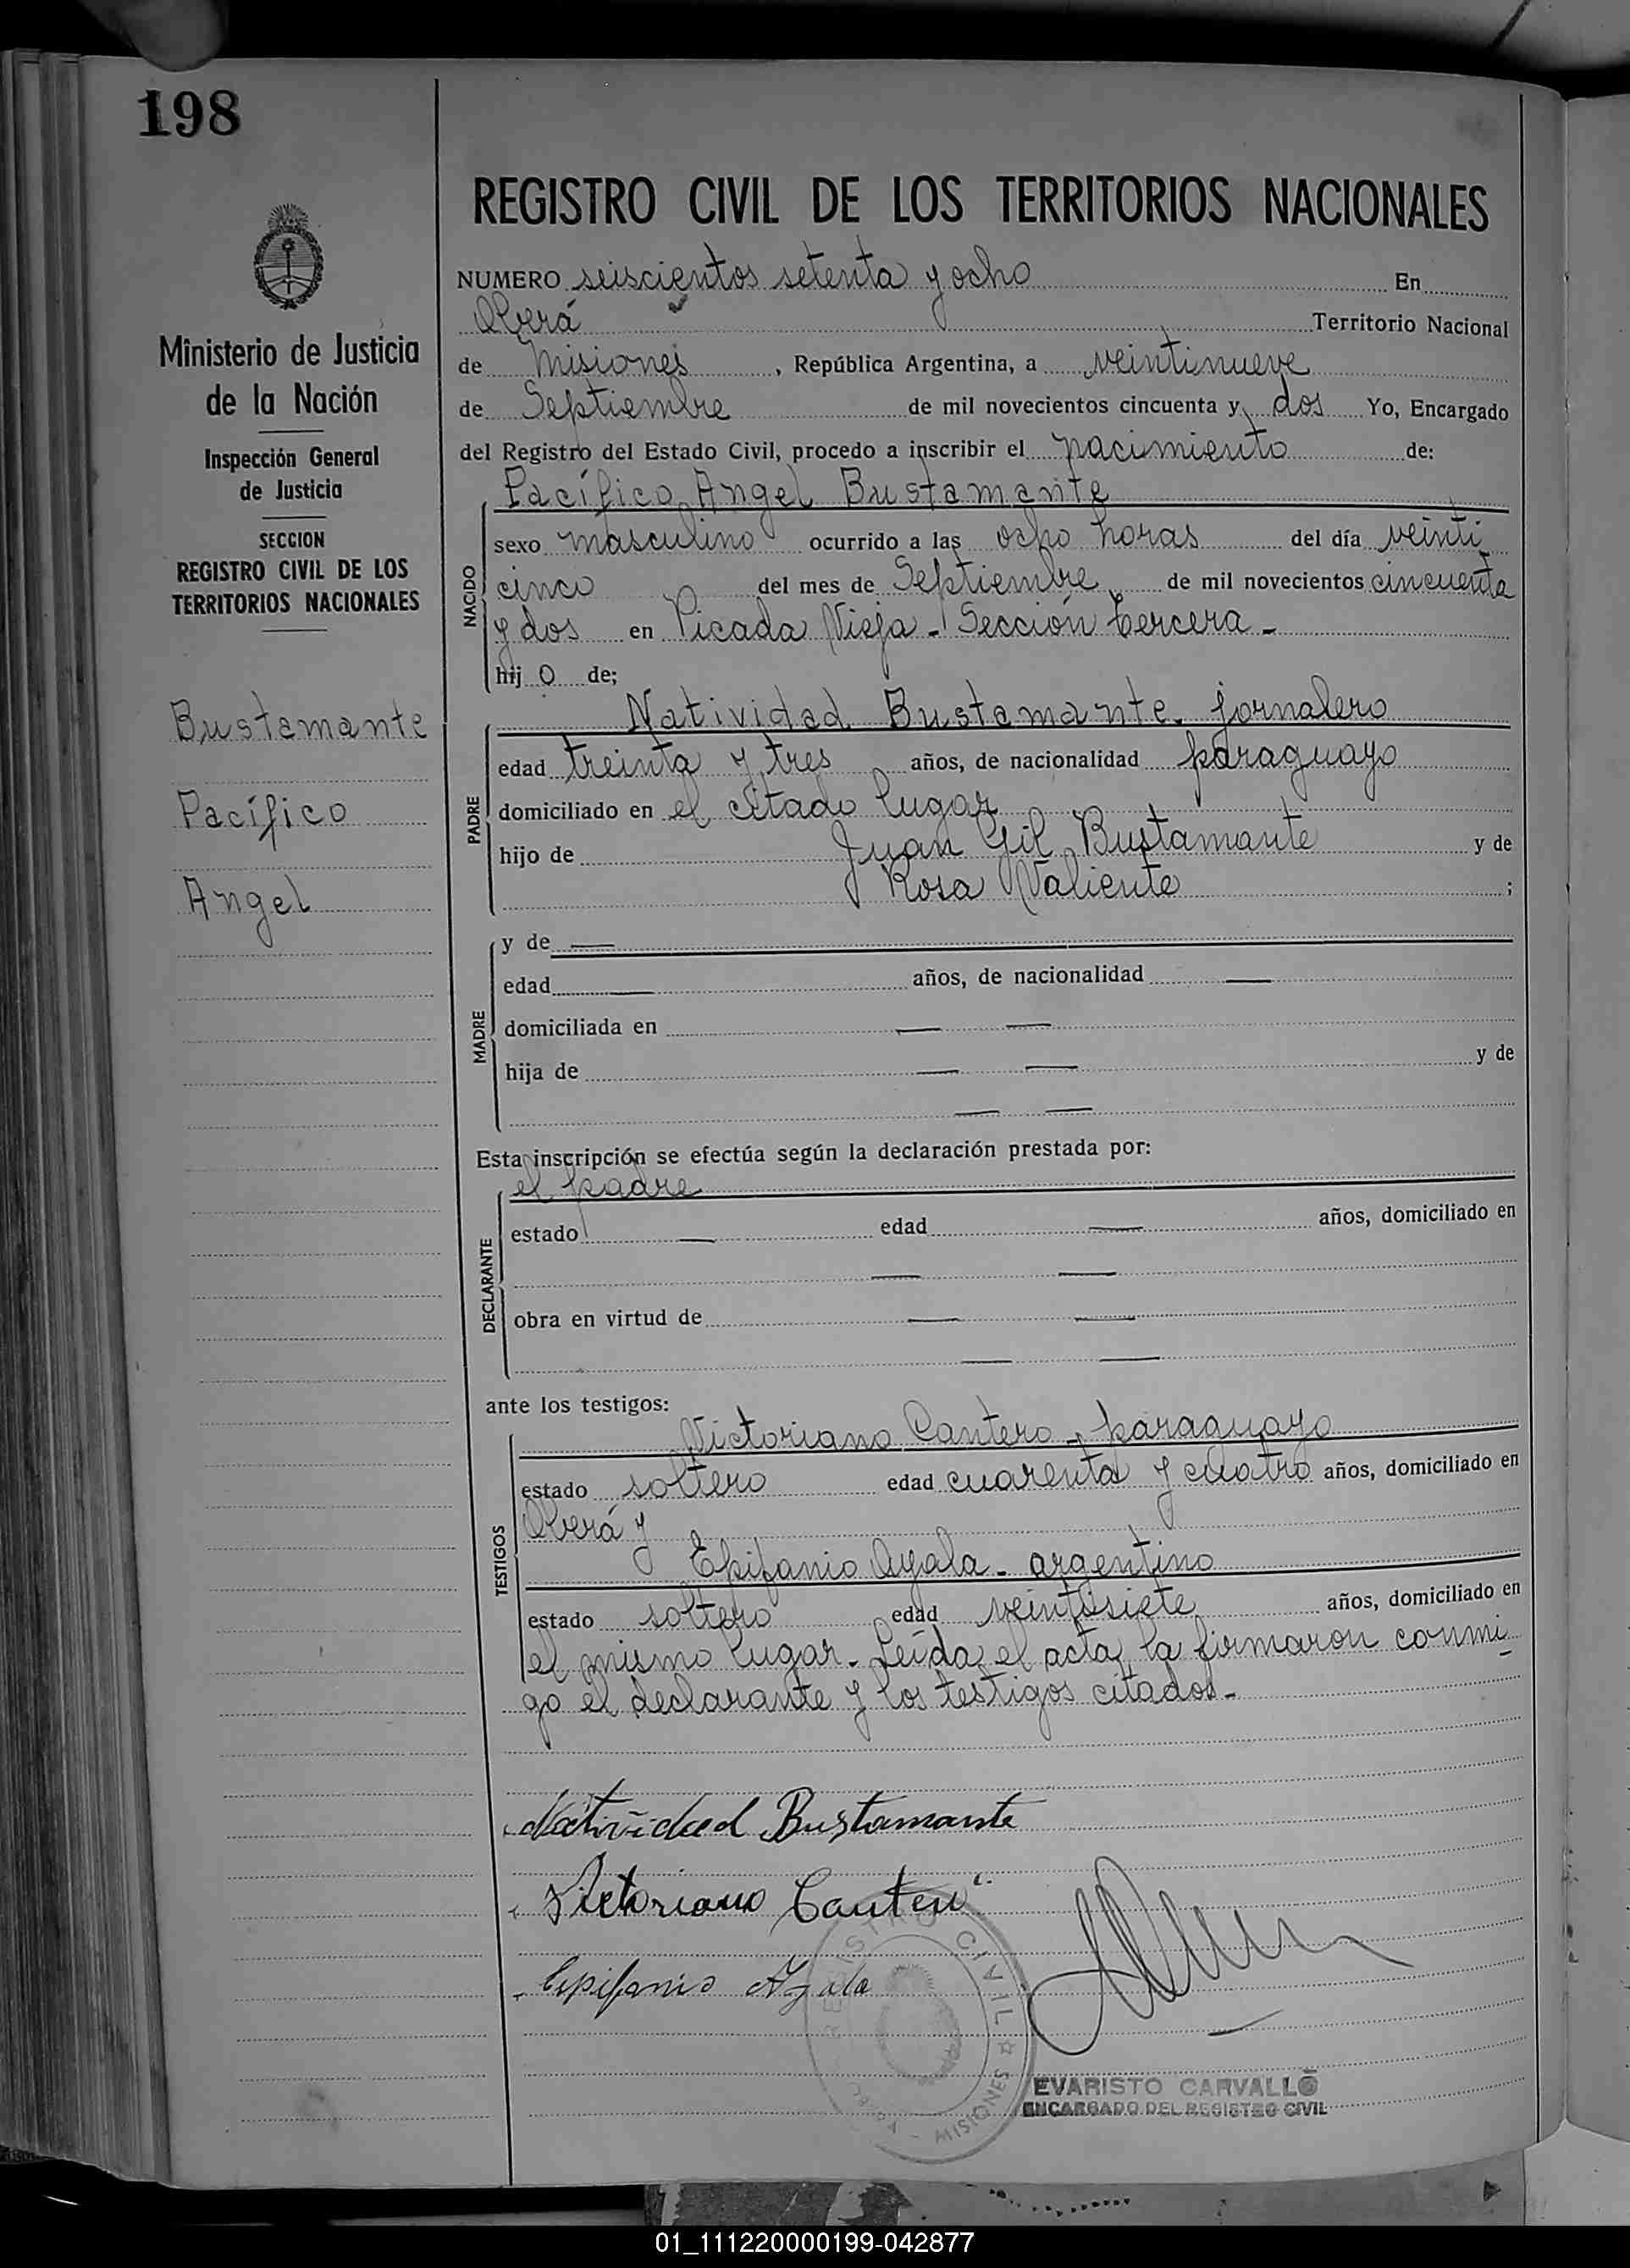 198
REGISTRO CIVIL DE LOS TERRITORIOS NACIONALES
Ministerio de Justicia
de la Nación
Inspección General
de Justicia
SECCION
REGISTRO CIVIL DE LOS
TERRITORIOS NACIONALES
Bustamante
Pacífico
Angel
NUMERO seiscientos setenta y ocho En
Oberá Territorio Nacional
de Misiones, República Argentina, a veintinueve
de Septiembre de mil novecientos cincuenta y dos Yo, Encargado
del Registro del Estado Civil, procedo a inscribir el nacimiento de:
Pacífico Angel Bustamante
NACIDO
sexo masculino ocurrido a las ocho horas del día veinti
cinco del mes de Septiembre de mil novecientos cincuenta
y dos en Picada Vieja - Sección tercera -
hij o de;
Natividad Bustamante. jornalero
PADRE
edad treinta y tres años, de nacionalidad paraguayo
domiciliado en el citado lugar
hijo de Juan Gil Bustamante y de
Rosa Valiente ;
MADRE
y de —
edad — años, de nacionalidad —
domiciliada en — —
hija de — — y de
— —
Esta inscripción se efectúa según la declaración prestada por:
el padre
DECLARANTE
estado — edad — años, domiciliado en
— —
obra en virtud de — —
— —
ante los testigos:
Victoriano Cantero - paraguayo
TESTIGOS
estado soltero edad cuarenta y cuatro años, domiciliado en
Oberá y
Epifanio Ayala - argentino
estado soltero edad veintisiete años, domiciliado en
el mismo lugar. Leída el acta, la firmaron conmi
go el declarante y los testigos citados -
Natividad Bustamante
Victoriano Cantero
Epifanio Ayala
REGISTRO CIVIL ☆ MISIONES
EVARISTO CARVALLO
ENCARGADO DEL REGISTRO CIVIL
01_111220000199-042877